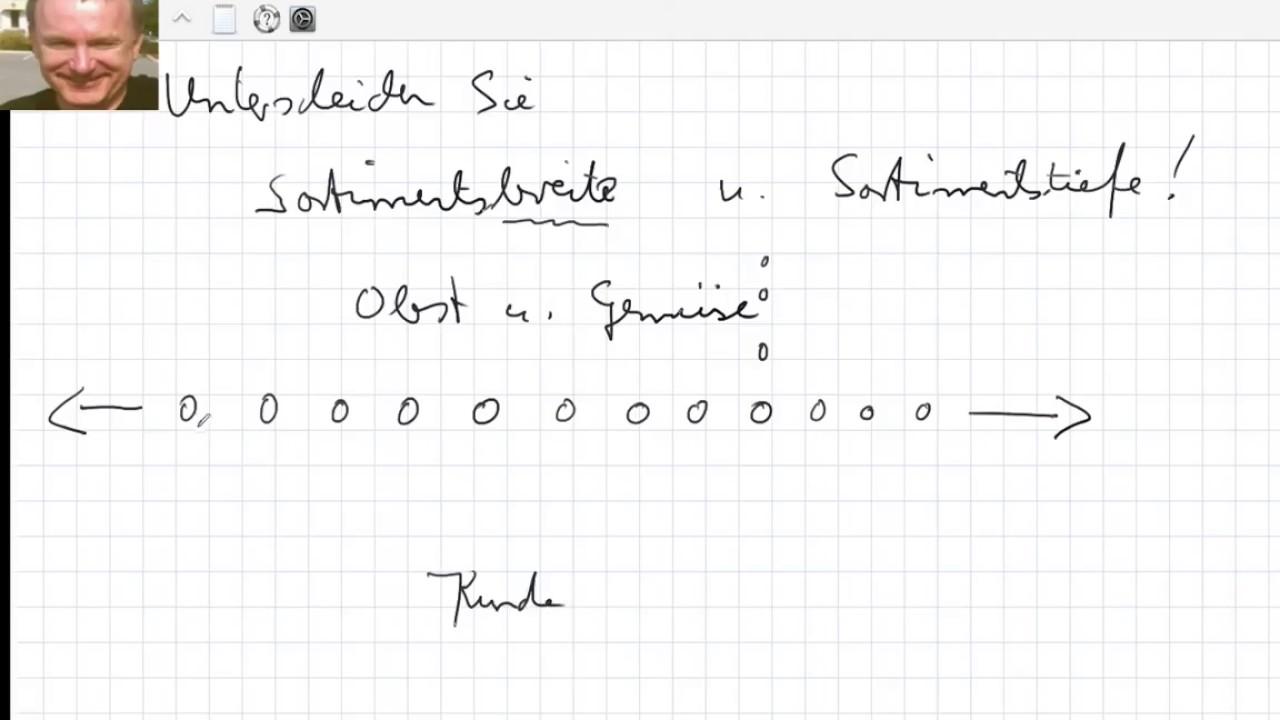 Unterscheiden Sie
Sortimentsbreite u. Sortimentstiefe!
Obst u. Gemüse
Kunde